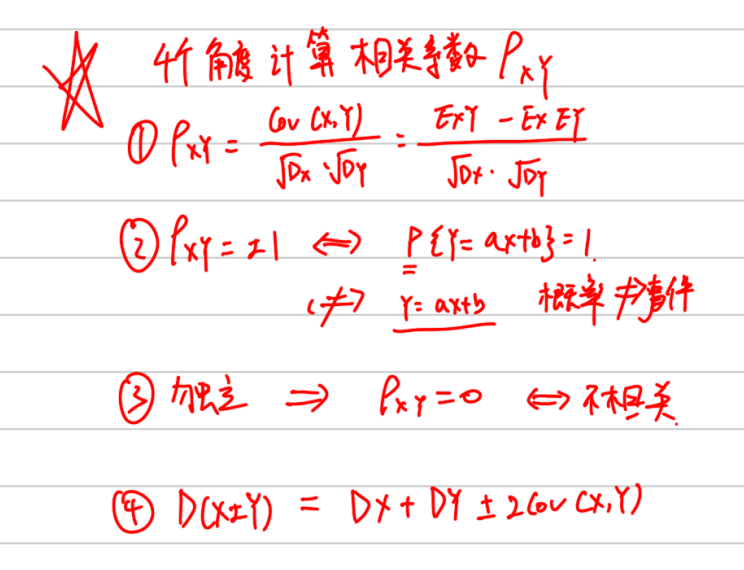 4个角度计算相关系数 ρxY
① ρxY = Cov(X,Y) / √Dx·√DY = ExY - Ex EY / √Dx·√DY
② ρxY = ±1 ⟺ P{Y=ax+b}=1.
⇎ Y=ax+b 概率⇏事件
③ 独立 ⇒ ρxY=0 ⟺ 不相关.
④ D(X±Y) = DX + DY ± 2Cov(X,Y)